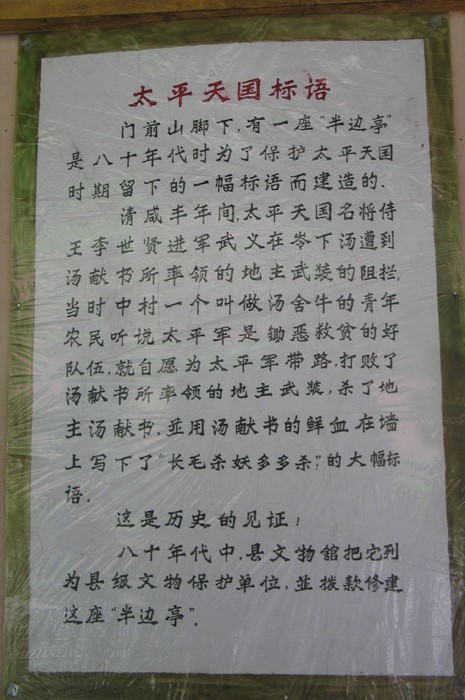 太平天国标语
门前山脚下,有一座“半边亭”
是八十年代时为了保护太平天国
时期留下的一幅标语而建造的.
清咸丰年间,太平天国名将侍
王李世贤进军武义在岑下汤遭到
汤献书所率领的地主武装的阻拦,
当时中村一个叫做汤舍牛的青年
农民听说太平军是锄恶救贫的好
队伍,就自愿为太平军带路,打败了
汤献书所率领的地主武装,杀了地
主汤献书,並用汤献书的鲜血在墙
上写下了“长毛杀妖多多杀”的大幅标
语。
这是历史的见证!
八十年代中,县文物舘把它列
为县级文物保护单位,並拨款修建
这座“半边亭”。